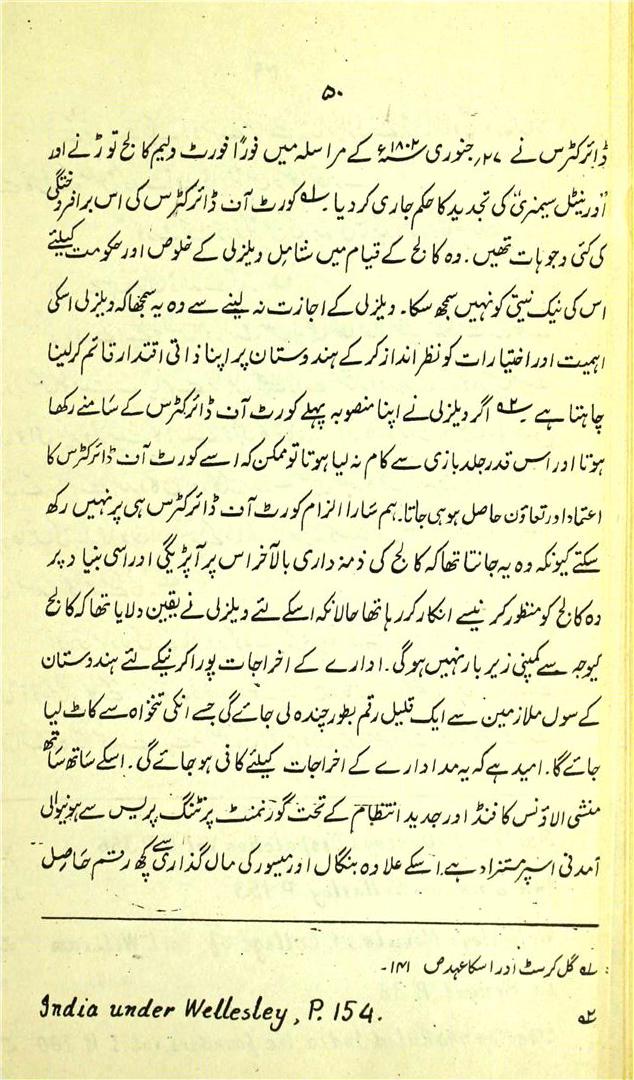 ۵۰
ڈائرکٹرس نے ۲۷؍ جنوری ۱۸۰۲ء کے مراسلہ میں فوراً فورٹ ولیم کالج توڑنے اور
اورینٹل سیمنری کی تجدید کا حکم جاری کر دیا ۔۱؎ کورٹ آف ڈائرکٹرس کی اس برافروختگی
کی کئی وجوہات تھیں۔ وہ کالج کے قیام میں شامل ویلزلی کے خلوص اور حکومت کیلئے
اس کی نیک نیتی کو نہیں سمجھ سکا۔ ویلزلی کے اجازت نہ لینے سے وہ یہ سمجھا کہ ویلزلی اسکی
اہمیت اور اختیارات کو نظر انداز کر کے ہندوستان پر اپنا ذاتی اقتدار قائم کر لینا
چاہتا ہے ۔۲؎ اگر ویلزلی نے اپنا منصوبہ پہلے کورٹ آف ڈائرکٹرس کے سامنے رکھا
ہوتا اور اس قدر جلد بازی سے کام نہ لیا ہوتا تو ممکن کہ اسے کورٹ آف ڈائرکٹرس کا
اعتماد اور تعاون حاصل ہو ہی جاتا۔ ہم سارا الزام کورٹ آف ڈائرکٹرس ہی پر نہیں رکھ
سکتے کیونکہ وہ یہ جانتا تھا کہ کالج کی ذمہ داری بالآخر اس پر آپڑیگی اور اسی بنیاد پر
وہ کالج کو منظور کرنیسے انکار کر رہا تھا حالانکہ اسکے لئے ویلزلی نے یقین دلایا تھا کہ کالج
کیوجہ سے کمپنی زیر بار نہیں ہو گی۔ ادارے کے اخراجات پورا کرنیکے لئے ہندستان
کے سول ملازمین سے ایک قلیل رقم بطور چندہ لی جائے گی جسے انکی تنخواہ سے کاٹ لیا
جائے گا۔ امید ہے کہ یہ مد ادارے کے اخراجات کیلئے کافی ہو جائے گی۔ اسکے ساتھ ساتھ
منشی الاؤنس کا فنڈ اور جدید انتظام کے تحت گورنمنٹ پرنٹنگ پریس سے ہونیوالی
آمدنی اسپر مستزاد ہے۔ اسکے علاوہ بنگال اور میسور کی مال گذاری سے کچھ رقم حاصل
۱؎ گل کرسٹ اور اسکا عہد ص ۱۴۱۔
۲؎ India under Wellesley, P. 154.